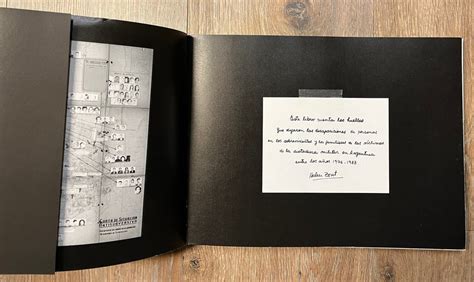 DE SITUACION
ANTISUBVERSIVO
Este libro cuenta las huellas
que dejaron las desapariciones de personas
en los sobrevivientes y los familiares de las víctimas
de la dictadura militar en Argentina
entre los años 1976-1983
Helen Zout